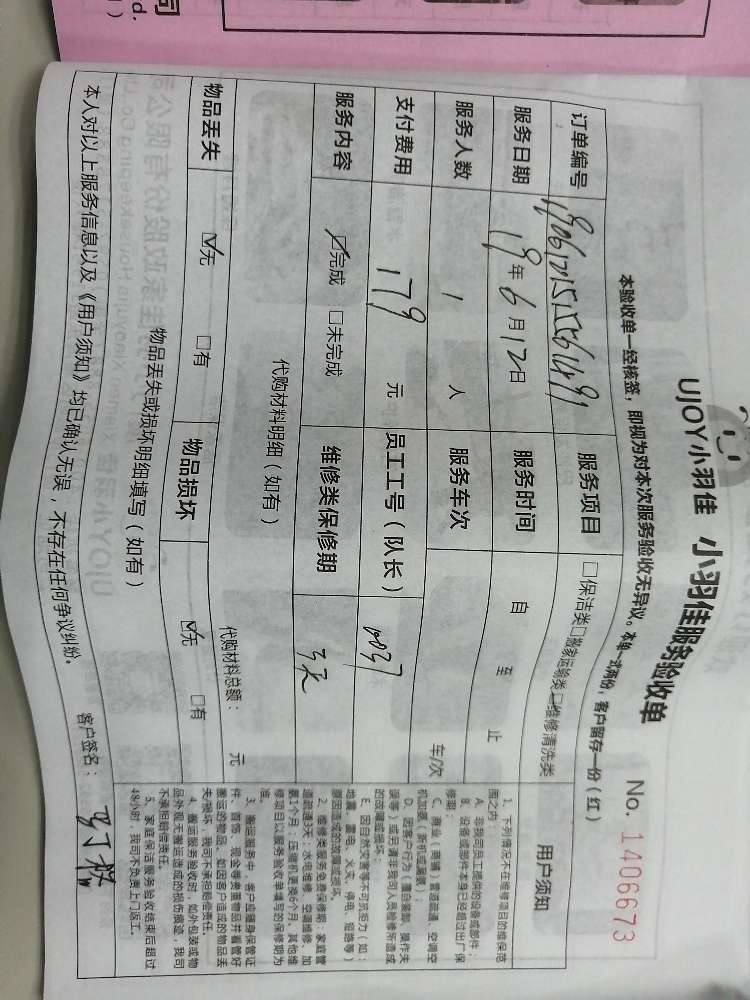 UJOY小羽佳 小羽佳服务验收单
No. 1406673
本验收单一经核签，即视为对本次服务验收无异议。本单一式两份，客户留存一份（红）
订单编号： 服务项目 □保洁类□搬家运输类□维修清洗类
服务日期 19年6月12日 服务时间 自 至 止
服务人数 1 人 服务车次 车/次
支付费用 179 元 员工工号（队长） 0037
服务内容 ☑完成 □未完成 维修类保修期 3天
代购材料明细（如有）
代购材料总额： 元
物品丢失 ☑无 □有 物品损坏 ☑无 □有
物品丢失或损坏明细填写（如有）
本人对以上服务信息以及《用户须知》均已确认无误，不存在任何争议纠纷。
客户签名：
用户须知
1、下列情况不在维修项目的维保范
围之内：
A、非我司员工提供的设备或部件；
B、设备或部件本身已经超过出厂保
修期；
C、商业（商铺）管道疏通、空调空
机加氟（新机或漏氟）；
D、因客户行为（擅自拆卸、操作失
误等）或另请非我司人员检修所造成
的故障或损坏；
E、因自然灾害等不可抗拒力（如：
地震、雷电、火灾、停电、短路等）
原因造成的故障或损坏。
2、维修类服务免费保修期：家庭管
道疏通3天，水电维修、空调维修、加
氟1个月；压缩机更换6个月，其他维
修项目以服务验收单填写的保修期为
准。
3、搬运服务中，客户应随身保管证
件、首饰、现金等贵重物品并看管好
搬运的物品，如因客户造成的物品丢
失/损坏，我司不承担赔偿责任。
4、搬运服务验收时，如外包装或物
品外观无搬运造成的损伤痕迹，我司
不承担赔偿责任。
5、家庭保洁服务验收结束后超过
48小时，我司不负责上门返工。